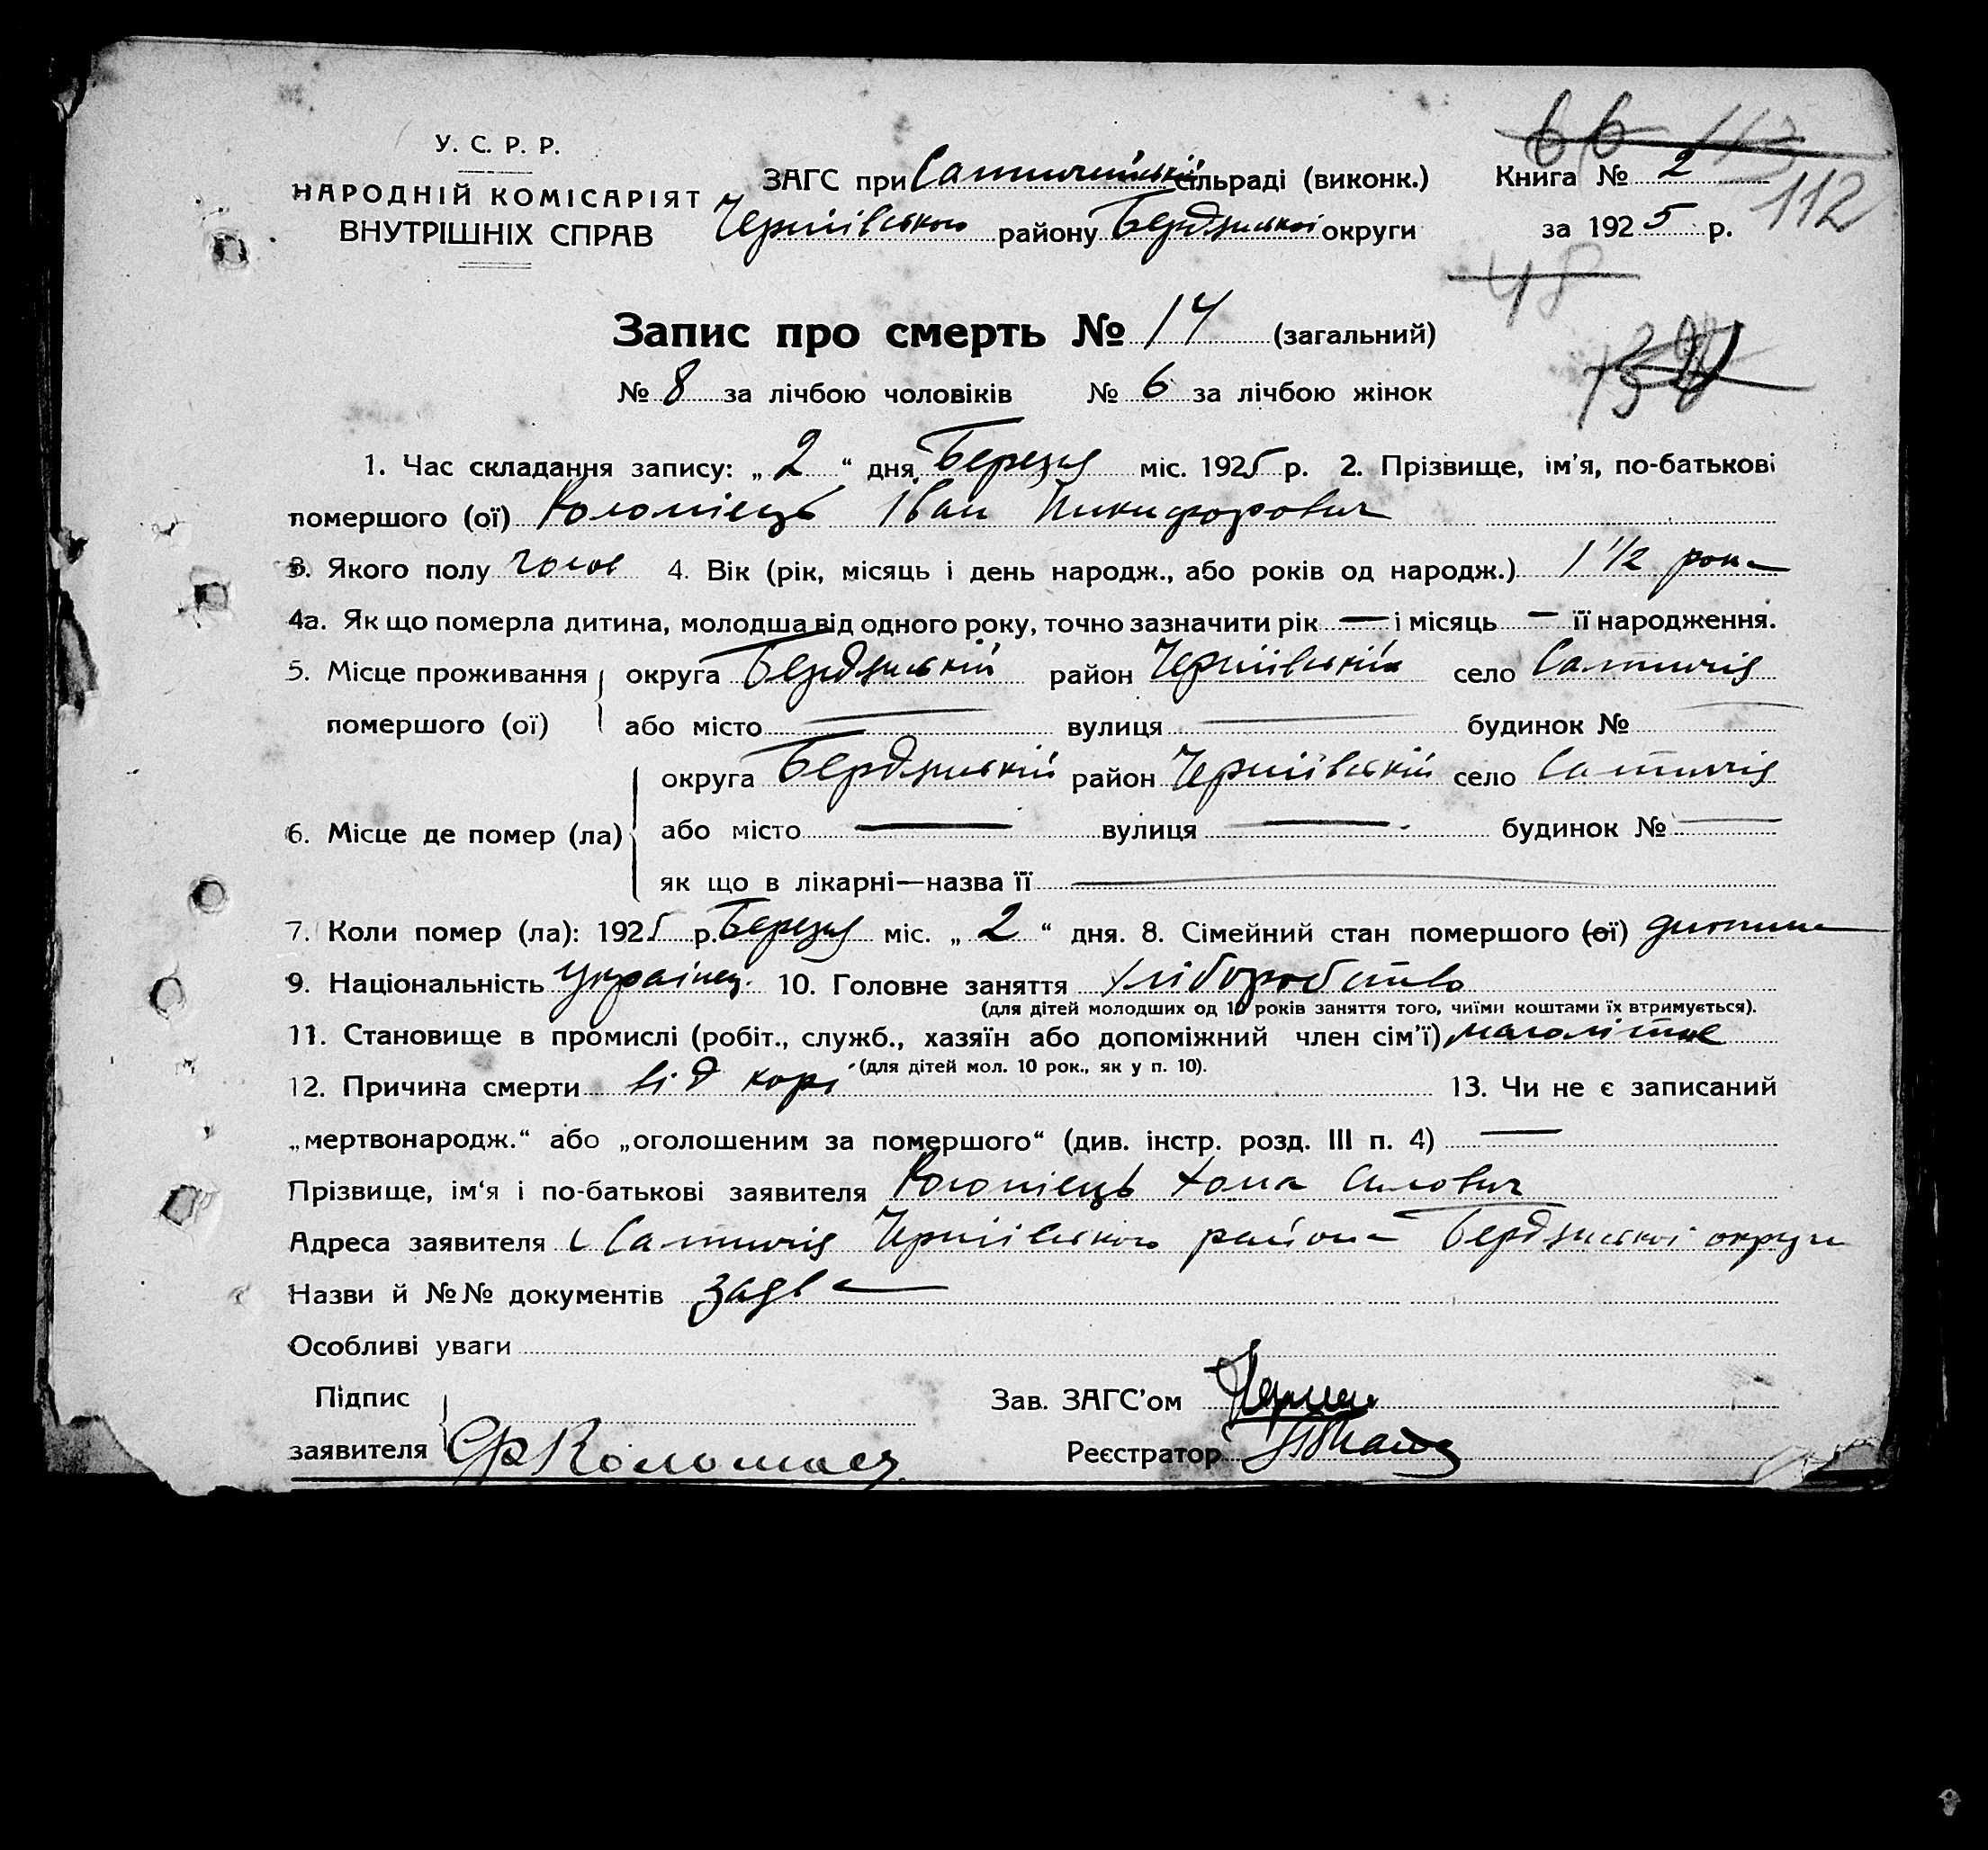 У. С. Р. Р.
НАРОДНІЙ КОМІСАРІЯТ
ВНУТРІШНІХ СПРАВ
ЗАГС при Салтичийській сільраді (виконк.)
Чернігівського району Бердянської округи
Книга № 2
за 1925 р.
66 113
112
48
Запис про смерть № 14 (загальний)
№ 8 за лічбою чоловіків № 6 за лічбою жінок
1. Час складання запису: „ 2 “ дня Березня міс. 1925 р. 2. Прізвище, ім'я, по-батькові
помершого (ої) Коломієць Іван Никифорович
3. Якого полу чолов 4. Вік (рік, місяць і день народж., або років од народж.) 1 1/2 рока
4а. Як що померла дитина, молодша від одного року, точно зазначити рік — і місяць — її народження.
5. Місце проживання округа Бердянській район Чернігівській село Салтичія
помершого (ої) або місто — вулиця — будинок № —
округа Бердянській район Чернігівській село Салтичія
6. Місце де помер (ла) або місто — вулиця — будинок № —
як що в лікарні—назва її —
7. Коли помер (ла): 1925 р. Березня міс. „ 2 “ дня. 8. Сімейний стан помершого (ої) дитина
9. Національність Українец. 10. Головне заняття хліборобство
(для дітей молодших од 10 років заняття того, чиїми коштами їх втримується).
11. Становище в промислі (робіт., служб., хазяїн або допоміжний член сім'ї) малолітне
(для дітей мол. 10 рок., як у п. 10).
12. Причина смерти від корі 13. Чи не є записаний
„мертвонародж.“ або „оголошеним за помершого“ (див. інстр. розд. III п. 4) —
Прізвище, ім'я і по-батькові заявителя Коломієць Хома Силович
Адреса заявителя с Салтичія Чернігівського района Бердянської округи
Назви й №№ документів заява
Особливі уваги
Підпис
заявителя Коломиец
Зав. ЗАГС'ом
Реєстратор